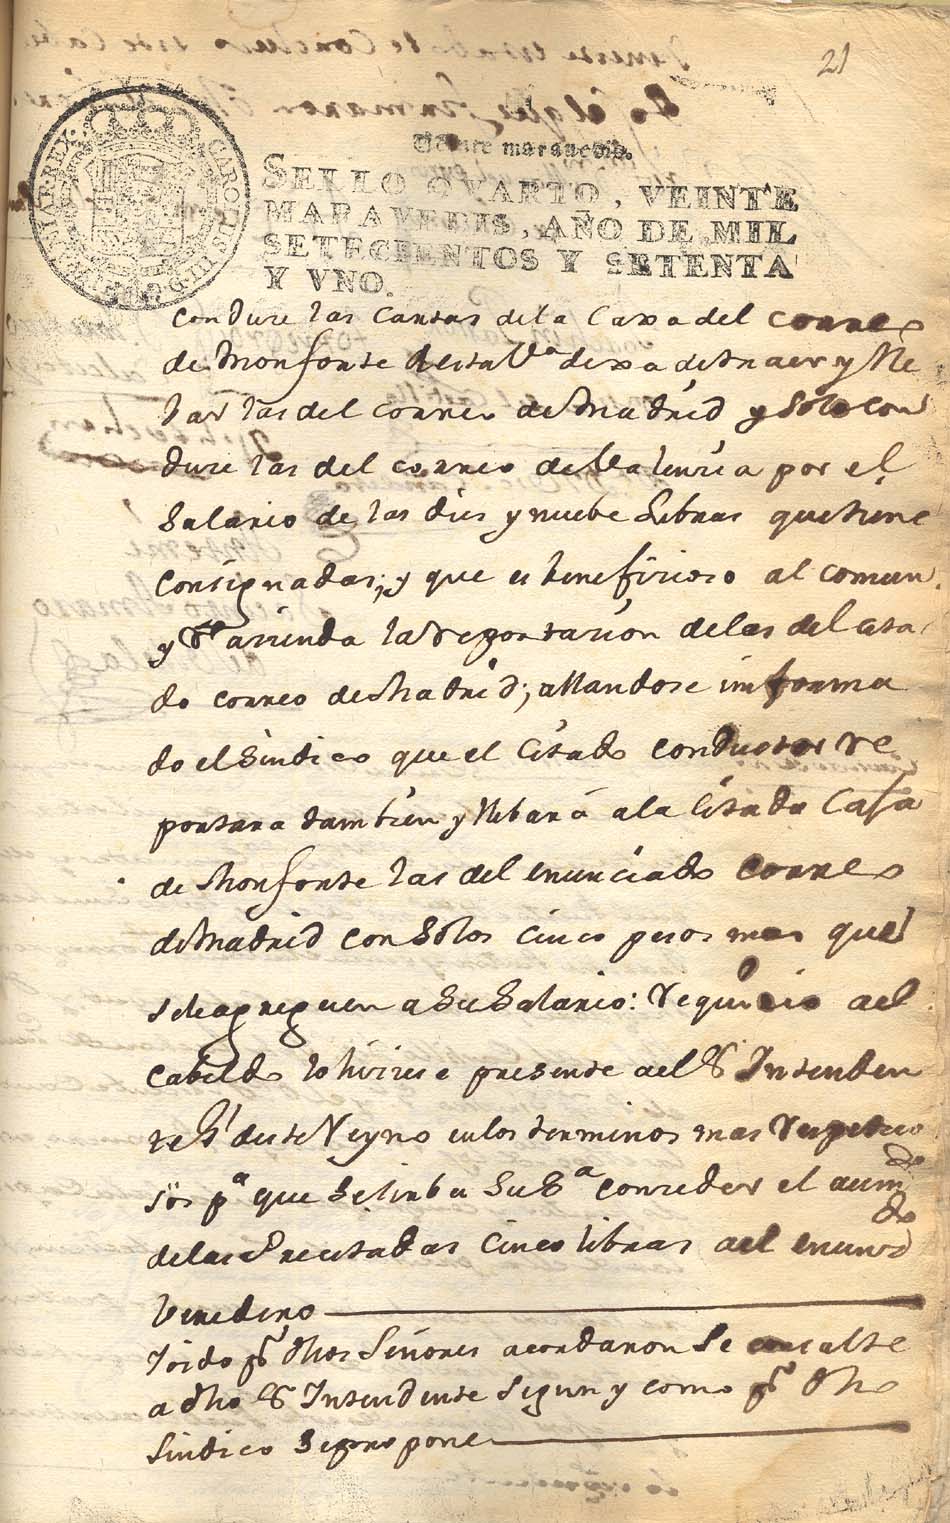 21
Veinte maravedis.
SELLO QVARTO, VEINTE
MARAVEDIS, AÑO DE MIL
SETECIENTOS Y SETENTA
Y VNO.
CAROLUS III D G HISPANIAR REX
conduce las Cartas dela Caxa del correo
de Monforte a esta Vª dexa de traer y lle
bar las del correo de Madrid y solo con
duce las del correo de Valencia por el
Salario de las dies y nuebe Libras que tiene
consignadas; y que es beneficioso al comun
y arrienda la reportasion delas del cita
do correo de Madrid; allandose informa
do el Sindico que el Citado conductor re
portara tambien y llebará ala Citada Casa
de Monforte las del enunciado correo
de Madrid con solos cinco pesos mas que
sele agreguen a su Salario: requirio ael
Cabildo lo hiziese presente ael Sr Intenden
te Gl deeste Reyno enlos terminos mas respectuo
sos pª que se sirba Su Sª conceder el aumdo
delas Precitadas Cinco libras ael enunsdo
Veredero
Y oido pr dhos Señores acordaron Se consulte
a dho Sr Intendente segun y como pr dho
Sindico se propone